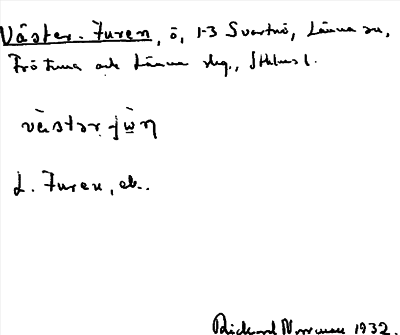 Väster-Furen, ö, 1-3 Svartnö, Länna sn,
Frötuna och Länna skg., Sthlms l.
L. Furen, ek.
Rickard Norrman 1932.